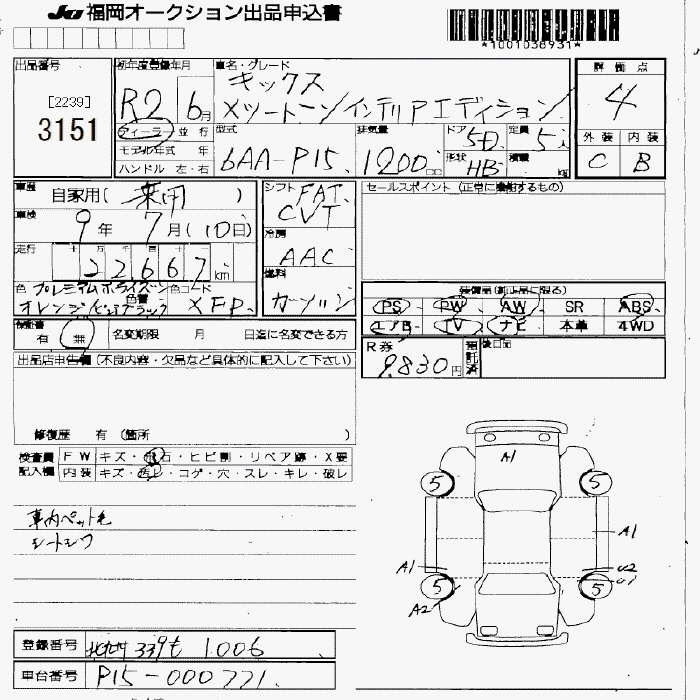 JU 福岡オークション出品申込書
*1001038931*
出品番号
[2239]
3151
初年度登録年月
R2 6月
ディーラー 並行
モデル年式 年
ハンドル 左・右
車名・グレード
キックス
Xツートーンインテリアエディション
型式 6AA-P15
排気量 1200 cc
ドア 5D
形状 HB
定員 5人
積載 kg
評価点
4
外装 内装
C B
車歴 自家用(乗用)
車検 9年 7月(10日)
走行 十 万 千 百 十 一
22,667 km
色 プレミアムホライズン
オレンジピンクブラック
色替 色コード XFP
シフト FAT CVT
冷房 AAC
燃料 ガソリン
セールスポイント (正常に機能するもの)
装備品(純正品に限る)
PS PW AW SR ABS
エアB TV ナビ 本革 4WD
R券 9,830円 預託済
後日品
検査書 有 無
名変期限 月 日迄に名変できる方
出品店申告欄(不良内容・欠品など具体的に記入して下さい)
修復歴 有 (箇所 )
検査員記入欄
FW キズ・飛石・ヒビ割・リペア跡・X要
内装 キズ・汚レ・コゲ・穴・スレ・キレ・破レ
車内ペット毛
シートシワ
A1
5 5
A1
A1 U2
5 5 U1
A2
登録番号 北九州 339 も 1006
車台番号 P15-000771